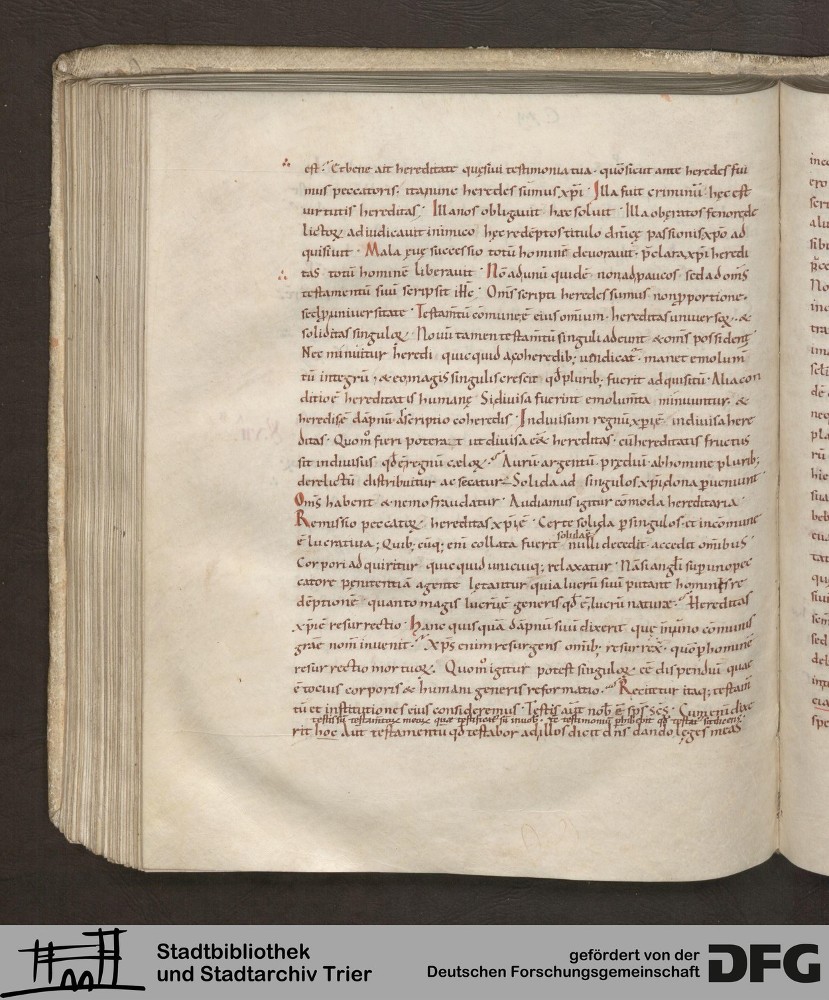 est. Et bene ait hereditate quęsiui testimonia tua. qm̄ sicut ante heredes fui
mus peccatoris. ita nunc heredes sumus xp̄i. Illa fuit criminū hęc est
uirtutis hereditas. Illa nos obligauit hæc soluit. Illa oberatos fenore de
adiudicauit inimico. hęc redēptos titulo dn̄icę passionis xp̄o ad
quisiuit. Mala successio totū hominē deuorauit. p̄clara xp̄i heredi
tas totū hominē liberauit. Nō ad unū quidē non ad paucos sed ad om̄s
testamentū suū scripsit Om̄s scripti heredes sumus non p̱ portione.
sed p̱ uniuersitate. Testam̄tū commune ē eius omnium. hereditas uniuersoꝝ. &
soliditas singuloꝝ. Nouū tamen testam̄tū singuli adeunt & om̄s possident.
Nec minuitur heredi quicquid a coheredib; uindicat᷑. manet emolum̄
tū integrū, & eo magis singulis crescit qd̄ plurib; fuerit adquisitū. Alia con
ditio ē hereditatis humanę. Si diuisa fuerint emolum̄ta minuuntur. &
heredis ē dāpnū ascriptio coheredis. Indiuisum regnū xp̄i ē indiuisa here
ditas. Quom̊ fieri poterat ut diuisa eēt hereditas. cū hereditatis fructus
sit indiuisus qd̄ ē regnū cæloꝝ. Aurū argentū prediū ab homine plurib;
derelictū distribuitur ac secatur. Solida ad singulos xp̄i dona p̱ueniunt.
Om̄s habent & nemo fraudatur. Audiamus igitur cōmoda hereditaria.
Remissio peccatoꝝ hereditas xp̄i ē. Certe solida p̱ singulos et in comune
ē lucratiua; Quib; cūq; eni collata fuerit nulli decedit accedit omībus.
solidaē
Corpori adquiritur quicquid unicuiq; relaxatur. Nā si angl̄i sup̱ uno pec
catore pęnitentiā agente lętantur quia lucrū suū putant hominis re
dēptionē. quanto magis lucrū ē generis qd̄ ē lucrū naturæ. Hereditas
xp̄i ē resurrectio. Hanc quisquā dāpnū suū dixerit que in uno cōmunis
grae nom̄ inuenit. Xp̄s enim resurgens omīb; resurrex̄. quo p̱ hominē
resurrectio mortuoꝝ. Quom̊ igitur potest singuloꝝ eē dispendiū quae
ē tocius corporis & humani generis reformatio. Recitetur itaq; testam̄
tū et institutiones eius consideremus. Testis aut̄ nob̄ ē sp̄s sc̄s. Cum eni dixe
rit hoc aut̄ testamentū qd̄ testabor ad illos dicit dn̄s dando leges meas
Stadtbibliothek
und Stadtarchiv Trier
gefördert von der
Deutschen Forschungsgemeinschaft
DFG